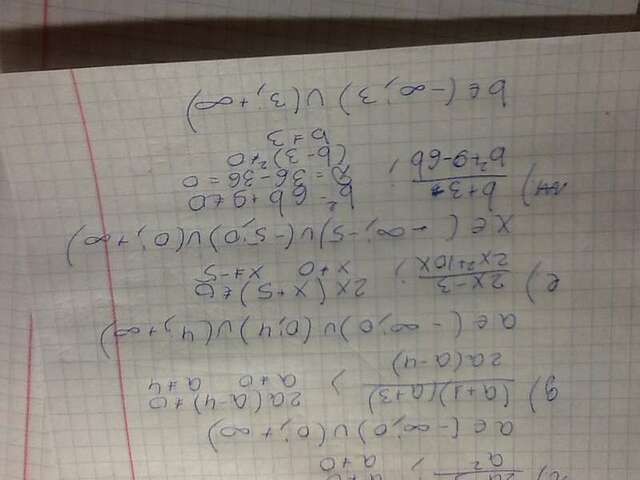 a²; a≠0
a∈(-∞;0)∪(0;+∞)
д) (a+1)(a+3) / 2a(a-4); 2a(a-4)≠0
a≠0 a≠4
a∈(-∞;0)∪(0;4)∪(4;+∞)
е) 2x-3 / 2x²+10x; 2x(x+5)≠0
x≠0 x≠-5
x∈(-∞;-5)∪(-5;0)∪(0;+∞)
ж) b+3 / b²+9-6b; b²-6b+9≠0
D=36-36=0
(b-3)²≠0
b≠3
b∈(-∞;3)∪(3;+∞)